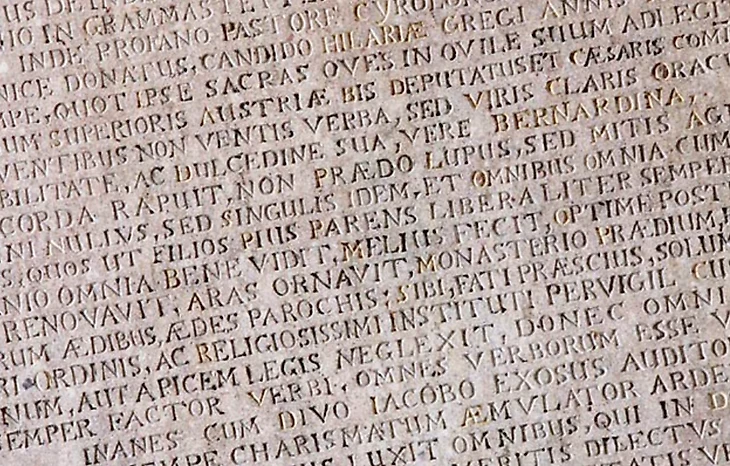 US DE IN
IO IN GRAMMASTET
INDE PROFANO PASTORE CYROLON
NICE DONATUS, CANDIDO HILARIÆ GREGI ANNIS
MPE, QUOT IPSE SACRAS OVES IN OVILE SUUM ADLEGIT
UM SUPERIORIS AUSTRIÆ BIS DEPUTATUS ET CÆSARIS COMI
VENTIBUS NON VENTIS VERBA, SED VIRIS CLARIS ORACU
BILITATE, AC DULCEDINE SUA, VERE BERNARDINA,
CORDA RAPUIT, NON PRÆDO LUPUS, SED MITIS AG
NI NULLIVS, SED SINGULIS IDEM, ET OMNIBUS OMNIA CUM
S, QUOS UT FILIOS PIUS PARENS LIBERALITER SEMPER
NIO OMNIA BENE VIDIT, MELIUS FECIT, OPTIME POST
RENOVAVIT, ARAS ORNAVIT, MONASTERIO PRÆDIUM,
RUM ÆDIBUS, ÆDES PAROCHIS; SIBI, FATI PRÆSCIUS, SOLUM
RI ORDINIS, AC RELIGIOSISSIMI INSTITUTI PERVIGIL CUS
NUM, AUT APICEM LEGIS NEGLEXIT, DONEC OMNI
SEMPER FACTOR VERBI, OMNES VERBORUM ESSE V
INANES CUM DIVO IACOBO EXOSUS AUDITO
EMPE CHARISMATUM ÆMULATOR ARDE
LUXIT OMNIBUS, QUI IN D
MERITIS DILECTUS
ATIS VE